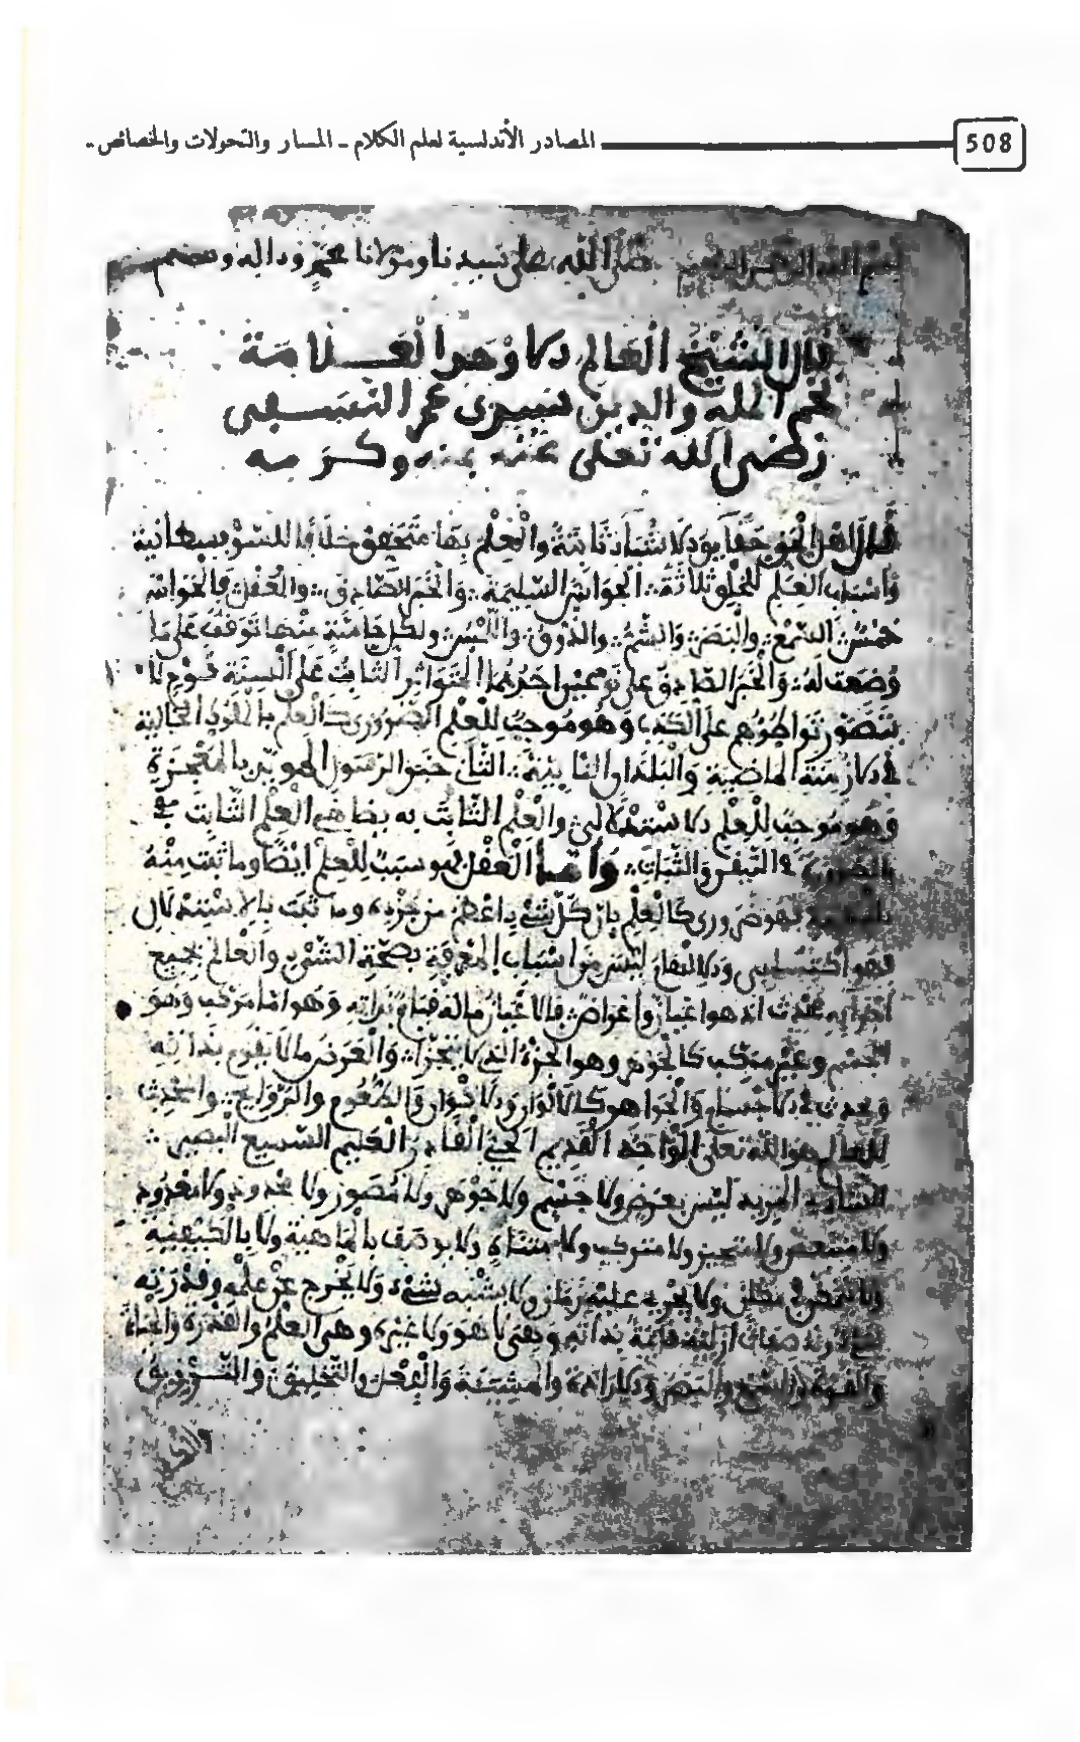 508
المصادر الأندلسية لعلم الكلام ـ المسار والتحولات والخصائص ..
بسم الله الرحمن الرحيم صلى الله على سيدنا ومولانا محمد وءاله و
قال الشيخ العالم الاوحد العلامة
نجم الملة والدين عمر النسفي
رضي الله تعلى عنه بمنه وكرمه
قال اهل الحق حقايق الاشياء ثابتة والعلم بها متحقق خلافا للسوفسطانية
واسباب العلم للخلق ثلاثة الحواس السليمة والخبر الصادق والعقل فالحواس
خمس السمع والبصر والشم والذوق واللمس ولكل حاسة منها توقف على ما
وضعت له والخبر الصادق على نوعين احدهما المتواتر الثابت على السنة قوم لا
يتصور تواطؤهم على الكذب وهو موجب للعلم الضروري كالعلم بالملوك الخالية
في الازمنة الماضية والبلدان النايية الثاني خبر الرسول المويد بالمعجزة
وهو موجب للعلم الاستدلالي والعلم الثابت به يضاهي العلم الثابت
بالضرورة في التيقن والثبات واما العقل فهو سبب للعلم ايضا وما ثبت منه
فهو ضروري كالعلم بان كل شيء اعظم من جزءه وما ثبت بالاستدلال
فهو اكتسابي والالهام ليس من اسباب المعرفة بصحة الشيء والعالم بجميع
اجزايه محدث اذ هو اعيان واعراض فالاعيان ماله قيام بذاته وهو اما مركب وهو
الجسم وغير مركب كالجوهر وهو الجزء الذي لا يتجزا والعرض ما لا يقوم بذاته
ويحدث في الاجسام والجواهر كالالوان والاكوان والطعوم والروايح والمحدث
للعالم هو الله تعلى الواحد القديم الحي القادر العليم السميع البصير
المريد ليس بعرض ولا جسم ولا جوهر ولا مصور ولا محدود ولا معدود
ولا متبعض ولا متحيز ولا متركب ولا متناه ولا يوصف بالماهية ولا بالكيفية
ولا يتمكن في مكان ولا يجري عليه زمان ولا يشبهه شيء ولا يخرج عن علمه وقدرته
شيء وله صفات ازلية قايمة بذاته وهي لا هو ولا غيره وهي العلم والقدرة والحياة
والقوة والسمع والبصر والارادة والمشيئة والفعل والتخليق والترزيق